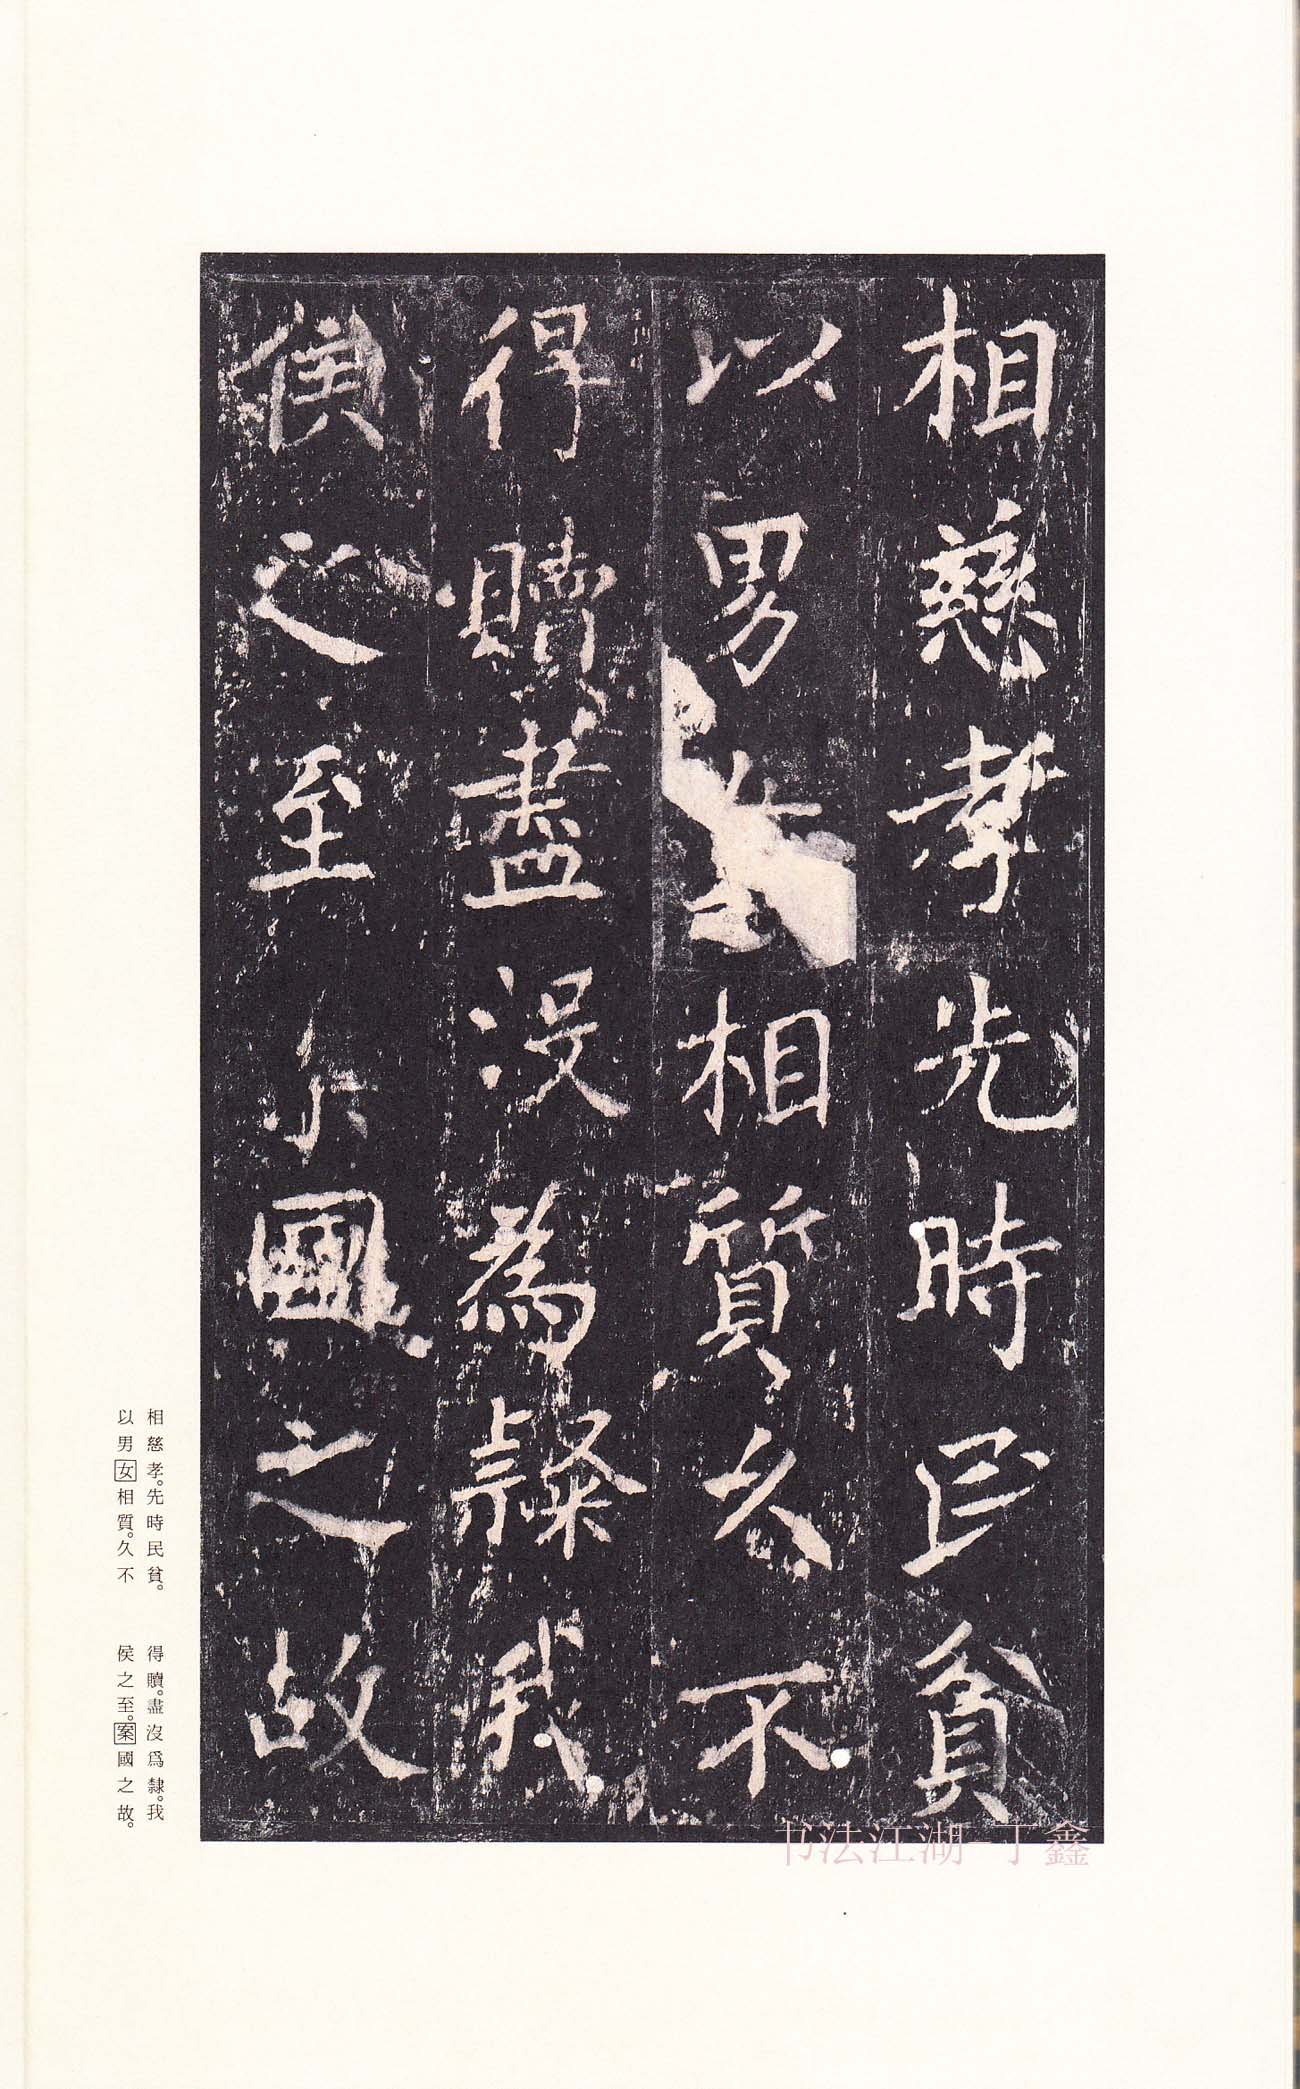 相慈孝先時民貧
以男女相質久不
得贖盡沒為隸我
侯之至 國之故
相慈孝。先時民貧。
以男女相質。久不
得贖。盡沒爲隸。我
侯之至。案國之故。
书法江湖-丁鑫